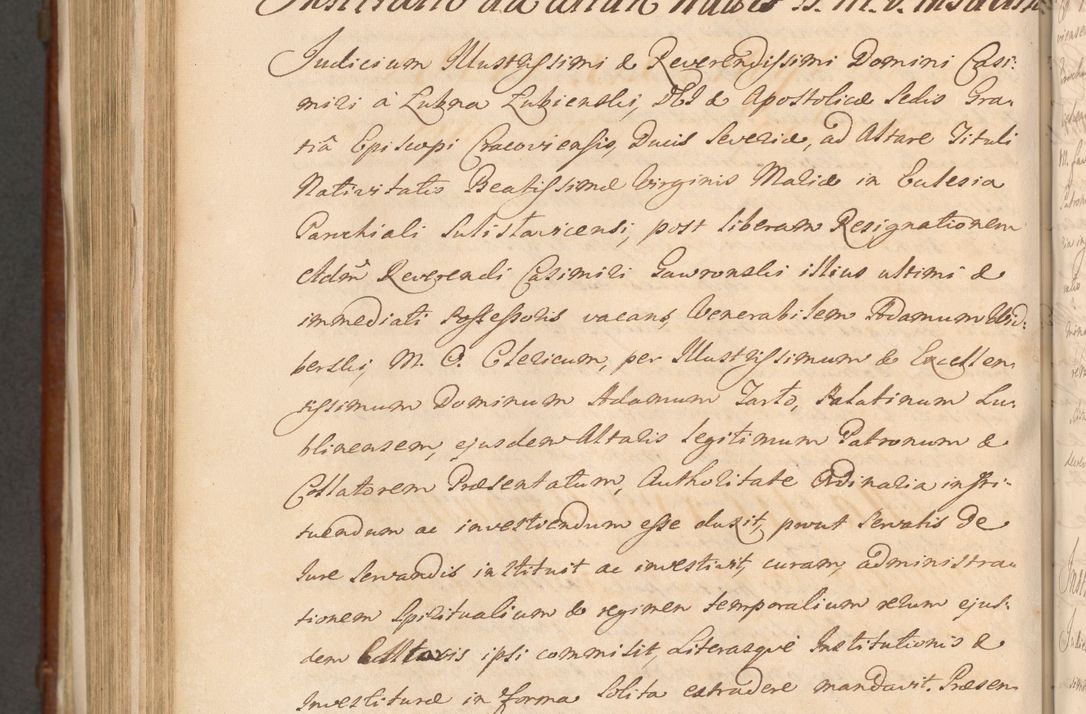 Institutio ad altare Nativis B. M. V. in
Judicium Illustrissimi & Reverendissimi Domini Casi-
miri à Łubna Łubienski, DEI & Apostolicæ Sedis Gra-
tiâ Episcopi Cracoviensis, Ducis Severiæ, ad Altare Tituli
Nativitatis Beatissimæ Virginis Mariæ in Eclesia
Parochiali Sulislavicensi, post liberam Resignationem
Adm̃ Reverendi Casimiri Gawronski illius ultimi &
immediati Possessoris vacans, Venerabilem Adamum
berski, M. C. Clericum, per Illustrissimum & Excellen-
tissimum Dominum Adamum Tarło, Palatinum Lu-
blinensem, ejusdem Altaris legitimum Patronum &
Collatorem Præsentatum, Authoritate Ordinaria insti-
tuendum ac investiendum esse duxit, prout servatis de
Jure servandis instituit ac investivit, curam, administra-
tionem Spiritualium & regimen temporalium rerum ejus-
dem Altaris ipsi commisit, Literasque Institutionis &
Investituræ in forma solita extradere mandavit. Præsen-